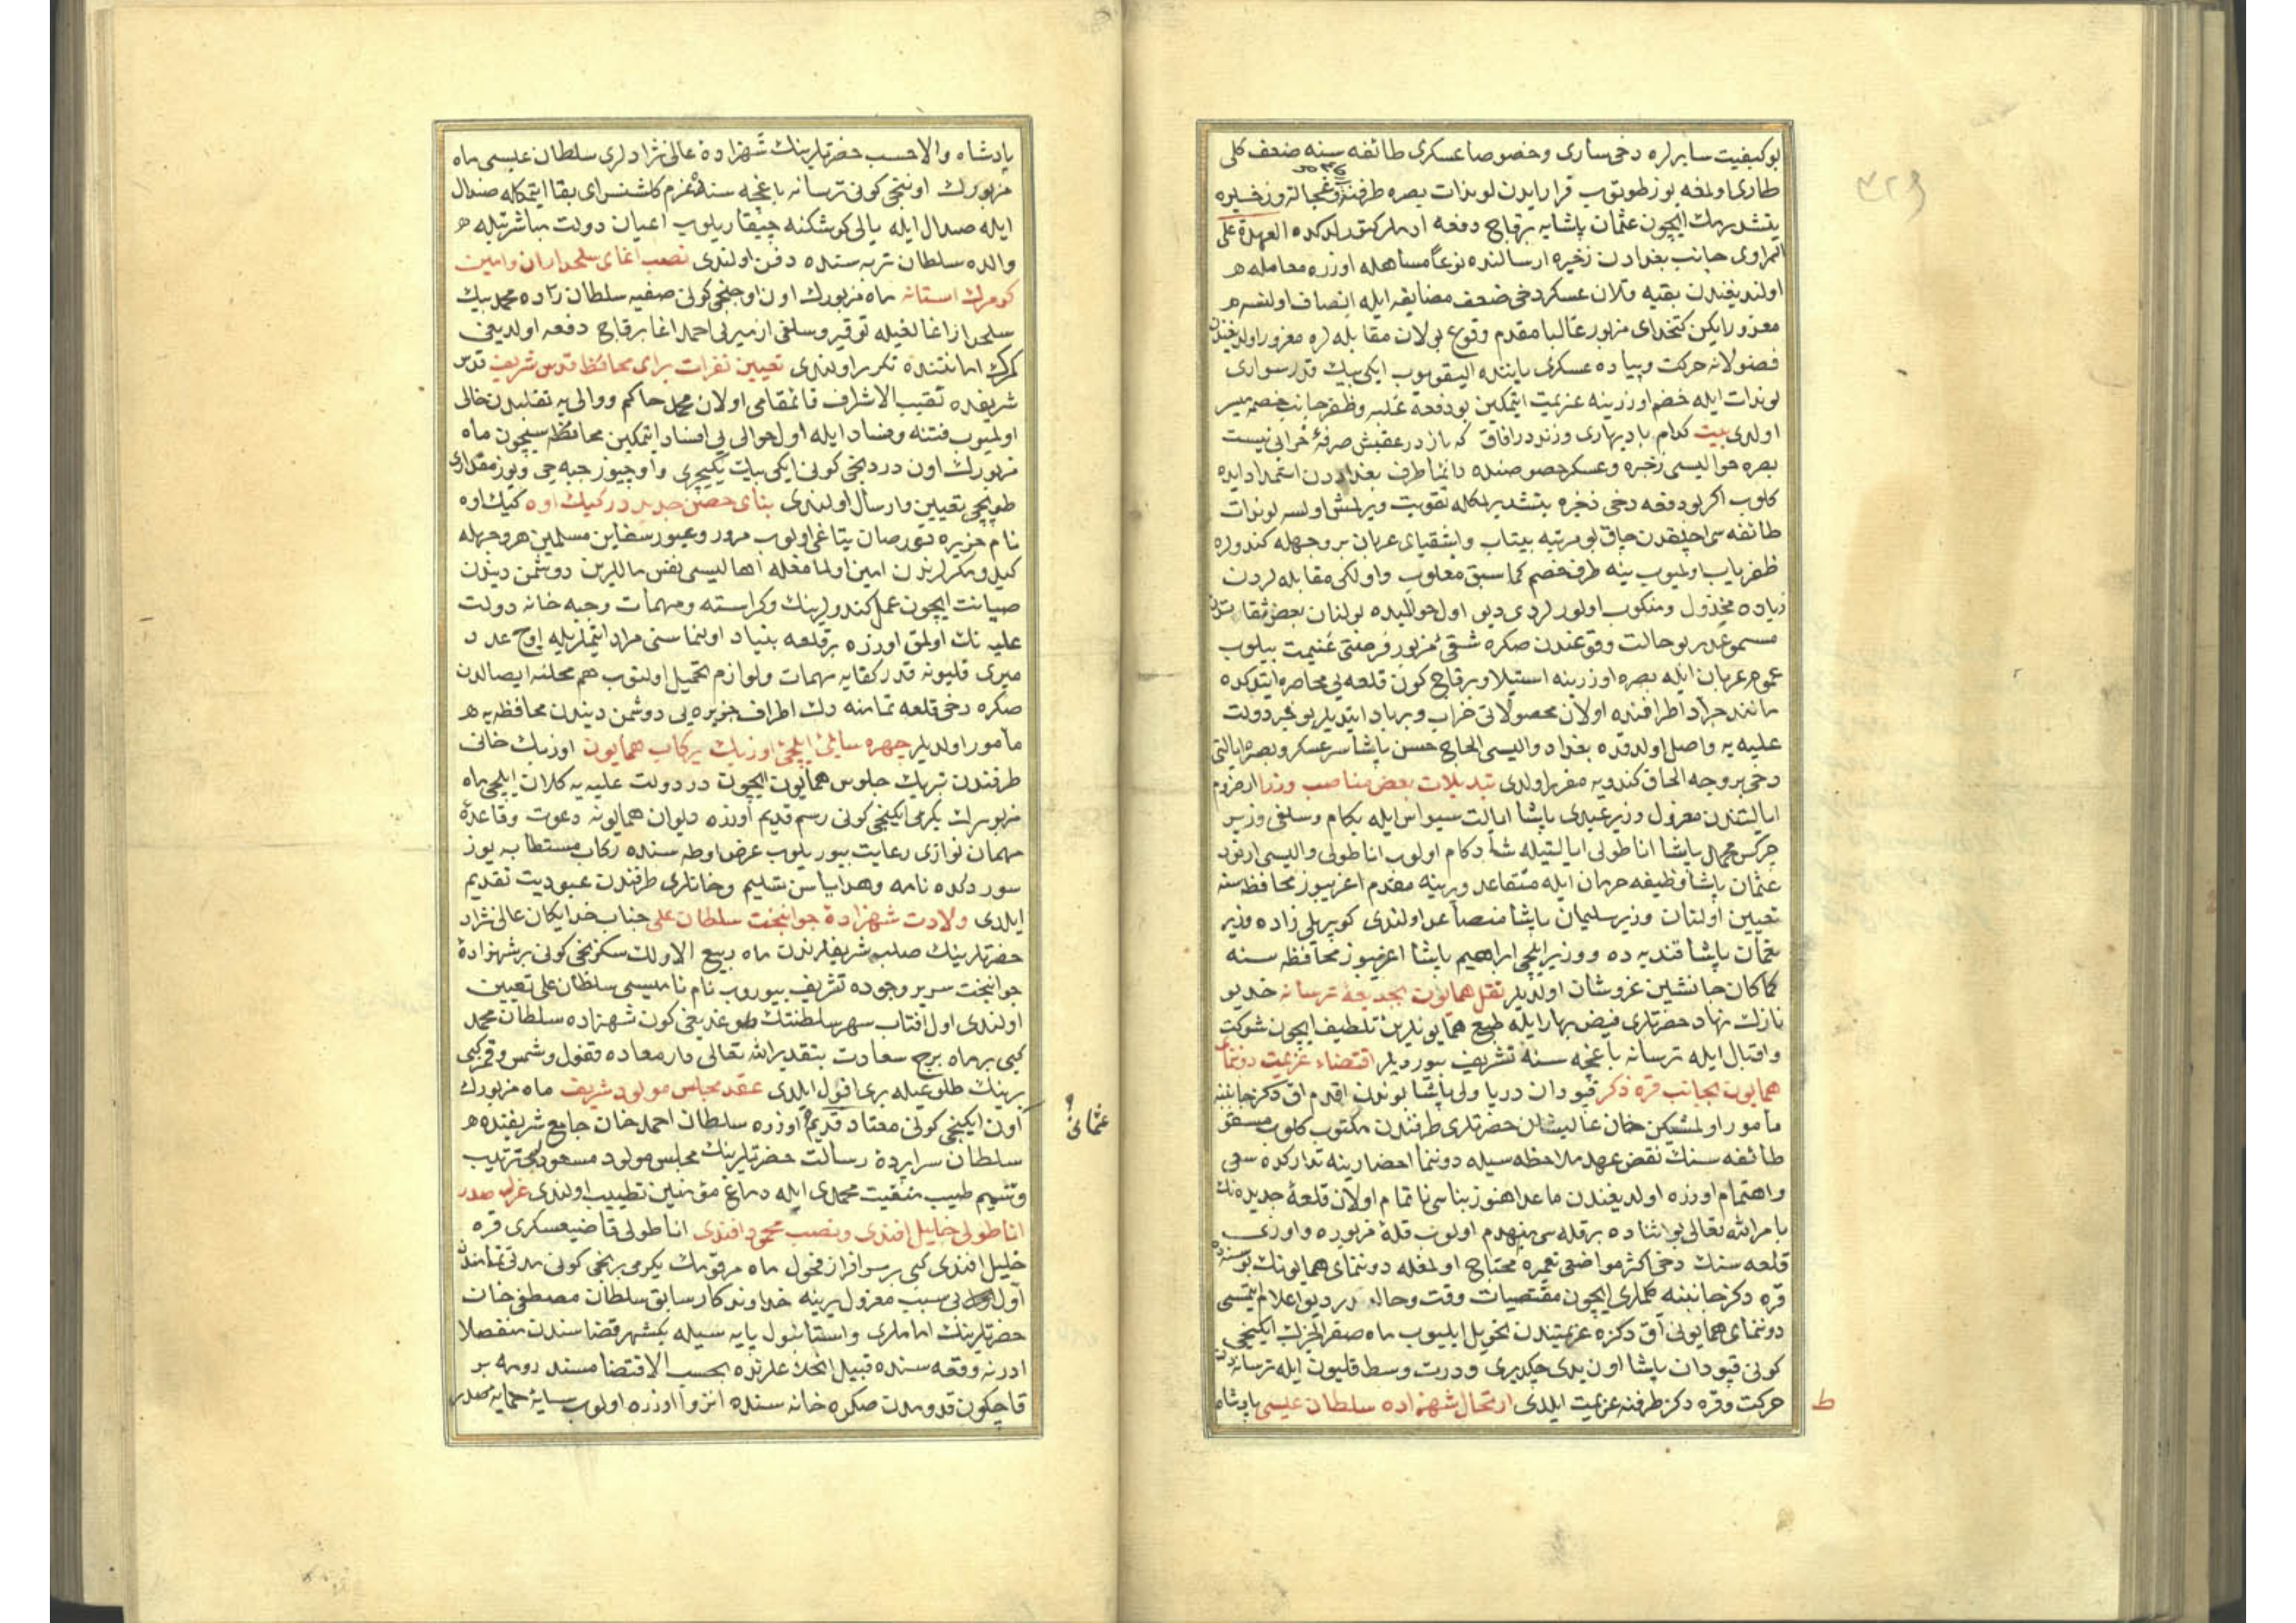 بو کیفیت سایرلره دخی ساری وخصوصا عسکری طائفه سنه ضعف کلی
طاری اولمغه یوز طوتوب فرار ایدن لوندات بصره طرفندن وخیره
یتشدیرمك ایچون عثمان پاشایه برقاج دفعه ادملر کوندردکده العهدة علی
الراوی جانب بغداددن ذخیره ارسالنده نوعا مساهله اوزره معامله
اولندیغندن بقیه قلان عسکر دخی ضعف مضایقه ایله اتصاف اولنسه
معذور ایکن کتخدای مزبور غالبا مقدم وقوع بولان مقابله لره مغرور اولدیغندن
فضولانه حرکت وپیاده عسکری یاننده الیقویوب ایکی بیك قدر سواری
لوندات ایله خصم اوزرینه عزیمت ایتمکین بو دفعه غلبه وظفر جانب خصمه میسر
اولدی بیت کدام باد بهاری وزید در افاق که باز در عقبش صرفهٔ خزانی نیست
بصره حوالیسی ذخیره وعسکر خصوصنده دائما طرف بغداددن استمداد ایده
کلوب اکر بو دفعه دخی ذخیره یتشدیرمکله تقویت ویرلمش اولسه لوندات
طائفه سی اجلقدن چاق بو مرتبه بیتاب واشقیای عربان بر وجهله کندولره
ظفریاب اولمیوب ینه طرف خصم کما سبق مغلوب واولکی مقابله لردن
زیاده مخذول ومنکوب اولورلردی دیو اول حوالیده بولنان بعض ثقاتدن
مسموعدر بو حالت وقوعندن صکره شقئ مزبور فرصتی غنیمت بیلوب
عموم عربان ایله بصره اوزرینه استیلا وبرقاج کون قلعه یی محاصره ایتدکده
مانند جراد اطرافنده اولان محصولاتی خراب وبرباد ایتدیلر بو خبر دولت
علیه یه واصل اولدقده بغداد والیسی الحاج حسن پاشا سرعسکر وبصره ایالتی
دخی بر وجه الحاق کندویه مقرر اولدی تبدیلات بعض مناصب وزرا ارضروم
ایالتندن معزول وزیر عبدی پاشا ایالت سیواس ایله بکام وسلفی وزیر
چرکس محمد پاشا اناطولی ایالتیله شادکام اولوب اناطولی والیسی ارنود
عثمان پاشا وظیفه حرمان ایله متقاعد ویرینه مقدم اغریبوز محافظه سنه
تعیین اولنان وزیر سلیمان پاشا منصاعد اولندی کوپریلی زاده وزیر
نعمان پاشا قندیه ده ووزیر ایلچی ابراهیم پاشا اغریبوز محافظه سنه
کماکان جانشین عز وشان اولدیلر نقل همایون بحدیقهٔ ترسانه خدیو
نازك نهاد حضرتلری فیض بهار ایله طبع همایونلرین تلطیف ایچون شوکت
واقبال ایله ترسانه باغچه سنه تشریف بیوردیلر اقتضاء عزیمت دوننمای
همایون بجانب قره دکز قپودان دریا ولی پاشا بوندن اقدم اق دکز جانبنه
مأمور اولمشیکن خان عالیشان حضرتلری طرفندن مکتوب کلوب مسقو
طائفه سنك نقض عهد ملاحظه سیله دوننما احضارینه تدارکده سعی
واهتمام اوزره اولدیغندن ماعدا هنوز بناسی ناتمام اولان قلعهٔ جدیده نك
بامر الله تعالی بو اثناده بر قله سی منهدم اولوب قلهٔ مزبوره واوزی
قلعه سنك دخی اکثر مواضعی تعمیره محتاج اولمغله دوننمای همایونك بو سنه ده
قره دکز جانبنه کلملری ایچون مقتضیات وقت وحالدر دیو اعلام ایتسی
دوننمای همایونی آق دکزه عزیمتدن تحویل ایلیوب ماه صفر الخیرك ایکنجی
کونی قپودان پاشا اون یدی چکدیری ودرت وسط قلیون ایله ترسانه دن
حرکت وقره دکز طرفنه عزیمت ایلدی ارتحال شهزاده سلطان عیسی پادشاه
پادشاه والاحسب حضرتلرینك شهزادهٔ عالی نژادلری سلطان عیسی ماه
مزبورك اوننجی کونی ترسانه باغچه سنده عزم کلشنسرای بقا ایتمکله صندال
ایله صندال ایله یالی کوشکنه چیقاریلوب اعیان دولت مباشرتیله
والده سلطان تربه سنده دفن اولندی نصب اغای سلحداران وامین
کومرك استانه ماه مزبورك اون اوچنجی کونی صفیه سلطان زاده محمد بیك
سلحدار اغالغیله توقیر وسلفی ازمیرلی احمد اغا برقاج دفعه اولدیغی
کمرك امانتنده تکرر اولندی تعیین نفرات برای محافظ قدس شریف قدس
شریفده نقیب الاشراف قائمقامی اولان محمد حاکم ووالی یه تقلیدن خالی
اولمیوب فتنه وفساد ایله اول حوالی یی افساد ایتمکین محافظه سیچون ماه
مزبورك اون دردنجی کونی ایکی بیك یکیچری واوچیوز جبه جی ویوز مقداری
طوپچی تعیین وارسال اولندی بنای حصن جدید در کیك اوه کیك اوه
نام جزیره قورصان یتاغی اولوب مرور وعبور سفاین مسلمین هر وجهله
کید ومکرلرندن امین اولمامغله اهالیسی نفس ماللرین دوشمن دیندن
صیانت ایچون عمل کندولرینك وکراسته ومهمات وجبه خانه دولت
علیه نك اولمق اوزره بر قلعه بنیاد اولنماسنی مراد ایتملریله اوج عدد
میری قلیونه قدر کفایه مهمات ولوازم تحمیل اولنوب هم محلنه ایصالدن
صکره دخی قلعه تمامنه دك اطراف جزیره یی دوشمن دیندن محافظه یه
مأمور اولدیلر چهره سائئ ایلچئ اوزبك برکاب همایون اوزبك خانی
طرفندن تبریك جلوس همایون ایچون در دولت علیه یه کلان ایلچی ماه
مزبورك یکرمی ایکنجی کونی رسم قدیم اوزره دیوان همایونه دعوت وقاعدهٔ
مهمان نوازی رعایت بیوریلوب عرض اوطه سنده رکاب مستطابه یوز
سوردکده نامه وهدایاسن تسلیم وخانلری طرفندن عبودیت تقدیم
ایلدی ولادت شهزادهٔ جوانبخت سلطان علی جناب خدایکان عالی نژاد
حضرتلرینك صلب شریفلرندن ماه ربیع الاولك سکزنجی کونی بر شهزادهٔ
جوانبخت سریر وجوده تشریف بیوروب نام نامیسی سلطان علی تعیین
اولندی اول افتاب سپهر سلطنتك طوغدیغی کون شهزاده سلطان محمد
کبی بر ماه برج سعادت بتقدیر الله تعالی دار معاده قفول وشمس وقمر کبی
برینك طلوعیله بری افول ایلدی عقد مجلس مولود شریف ماه مزبورك
اون ایکنجی کونی معتاد قدیم اوزره سلطان احمد خان جامع شریفنده
عثمانی
سلطان سراپردهٔ رسالت حضرتلرینك مجلس مولود مسعودلری ترتیب
وتشمیم طیب منقبت محمدی ایله دماغ مؤمنین تطییب اولندی عزل صدر
اناطولی خلیل افندی ونصب محمود افندی اناطولی قاضیعسکری قره
خلیل افندی کبی بر سرافراز فحول ماه مرقومك یکرمی برنجی کونی مدتی تمامندن
اول بی سبب معزول یرینه خداوندکار سابق سلطان مصطفی خان
حضرتلرینك اماملری واستانبول پایه سیله یکیشهر قضاسندن منفصلا
ادرنه وقعه سنده قبیل انحلاعلرنده بحسب الاقتضا مسند رومه بر
قاچکون قدومدن صکره خانه سنده انزوا اوزره اولوب سایهٔ حمایه صدر